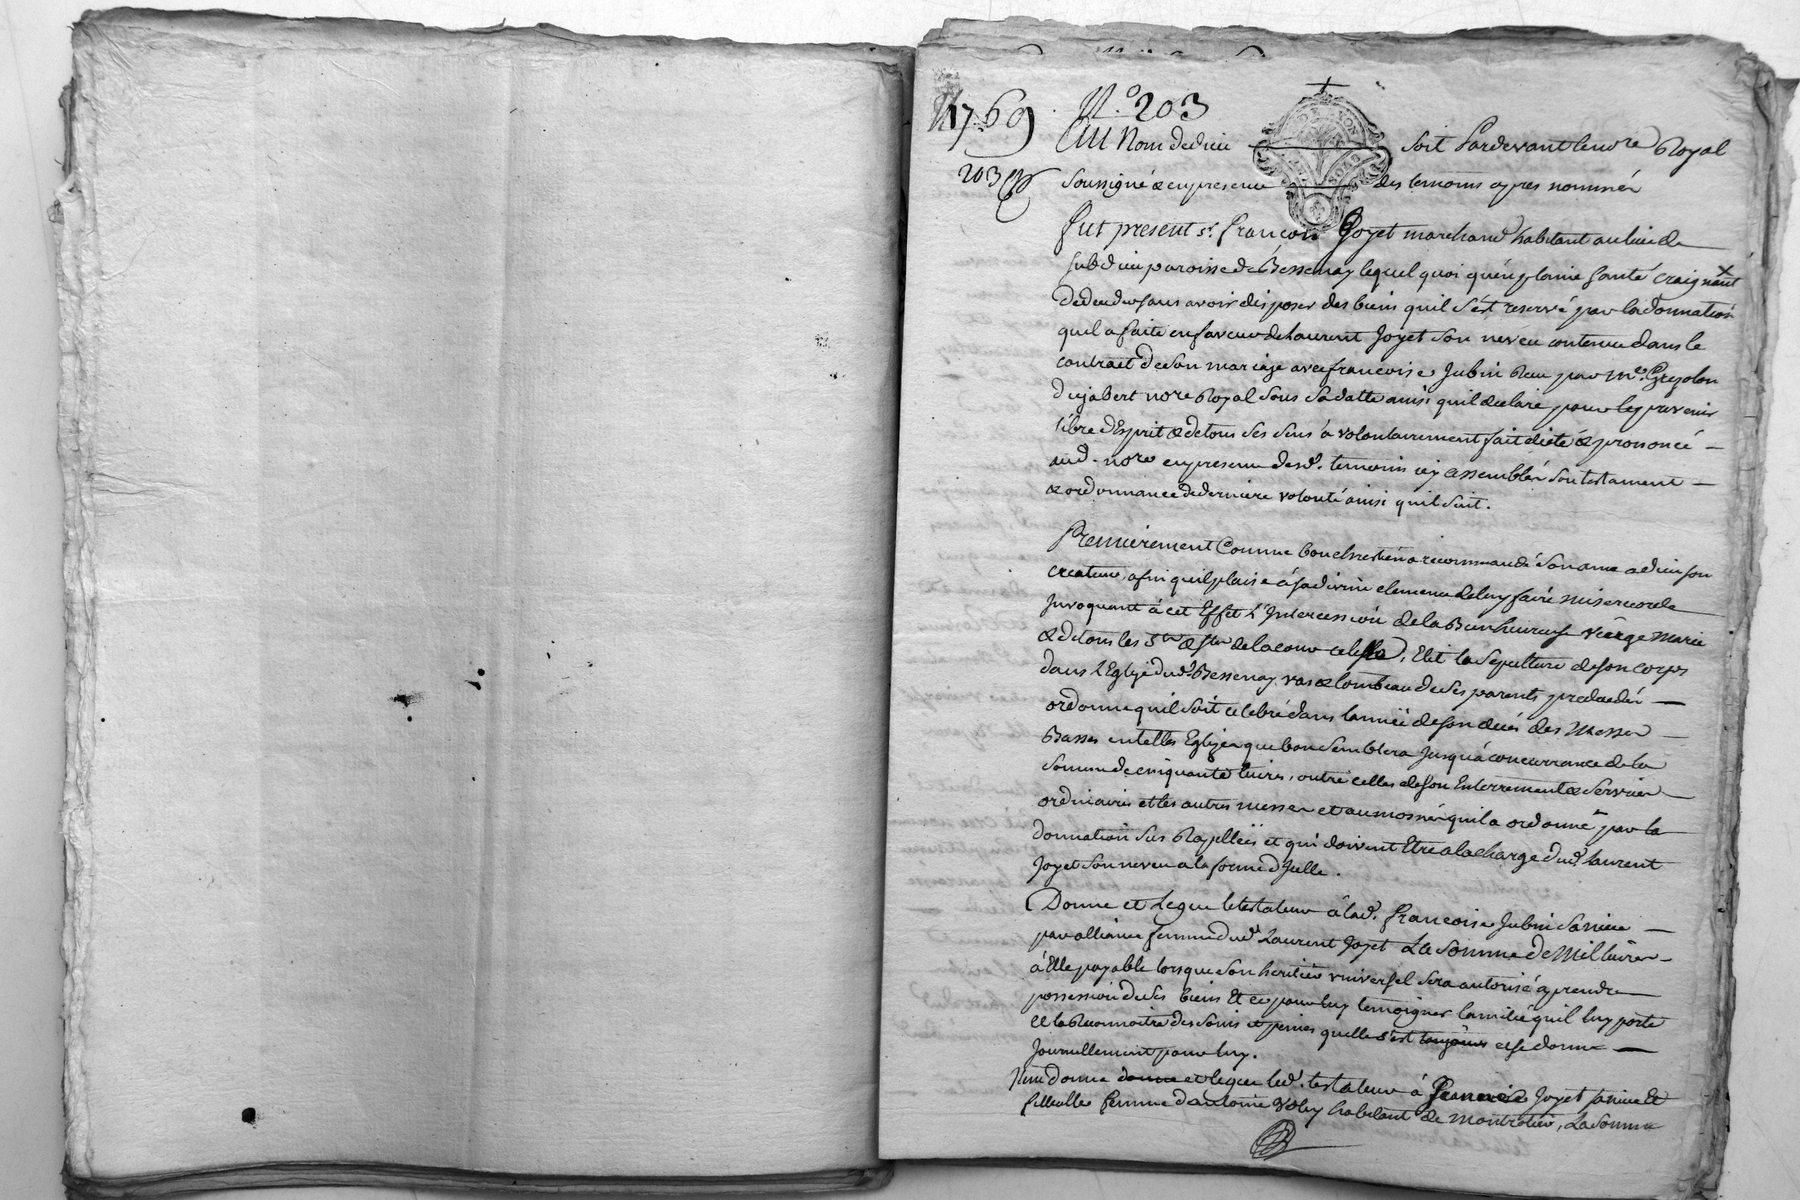 1769 N.o 203
203
Au Nom de dieu Soit Pardevant le no.re Royal
Soussigné & en presence des temoins apres nommés
fut present s.r françois Joyet marchand habitant au lieu de
paroisse de Bessenay lequel quoi qu'en plaine santé craignant
de deceder sans avoir disposer des biens quil s'est reservé par la donnation
quil a faite en faveur de Laurent Joyet son neveu contenue dans le
contrait de son mariage avec francoise Jubin Reçu par M.e Grezolon
Dujabert no.re Royal Sous Sa datte ainsi quil declare pour le prevenir
libre d'Esprit & de tous Ses Sens a volontairement fait dicté & prononcé
aud. no.re en presence desd. temoins icy assemblés Son testament
& ordonnance de derniere volonté ainsi quil Suit.
Premierement Comme bon chrestien a recommandé Son ame a dieu Son
createur, afin quil plaise á Sa divine clemence de luy faire misericorde
Invoquant á cet Effet L'Intercession de la Bienheureuse vierge Marie
& de tous les S.ts & S.tes de la cour celeste, Elit la Sepulture de Son corps
dans L'Eglize dud. Bessenay vas & tombeau de Ses parents predecedés
ordonne quil Soit celebré dans lannée de Son decés des Messes
Basses en telles Eglizes que bon Semblera Jusquá concurrance de la
Somme de cinquante livres, outre celles de Son Enterrement & Services
ordinaires et les autres messes et aumosnes quil a ordonné par la
donnation Sus Rapellée et qui doivent Etre a la charge dud. Laurent
Joyet Son neveu a la forme d'Jcelle.
Donne et Legue le testateur á lad. francoise Jubin Sa niece
par alliance femme dud. Laurent Joyet La Somme de Mil livres
á Elle payable lorsque Son heritier universel Sera autorisé á prendre
possession de Ses biens Et ce pour luy temoigner lamitié quil luy porte
et la Reconnoitre des Soins et peines quelle s'est toujours et se donne
Journellement pour luy.
Item donne donne et legue led. testateur á Joyet sa niece Et
filleulle femme d'antoine habitant de Montrotier, La Somme